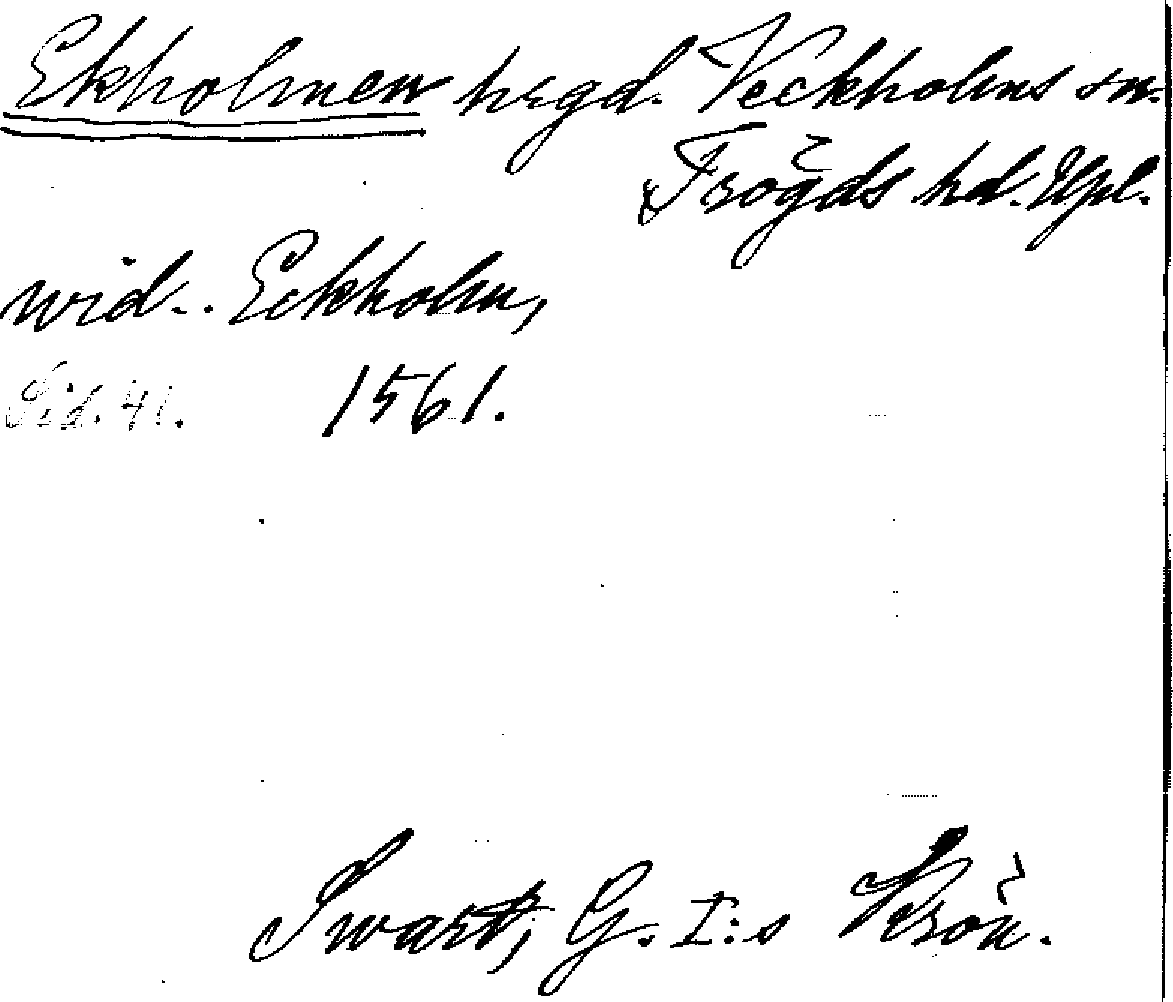 Ekholmen hrgd. Veckholms sn.
Trögds hd. Upl.
wid.. Eckholm,
Sid. 41. 1561.
Swart, G. I:s Krön.